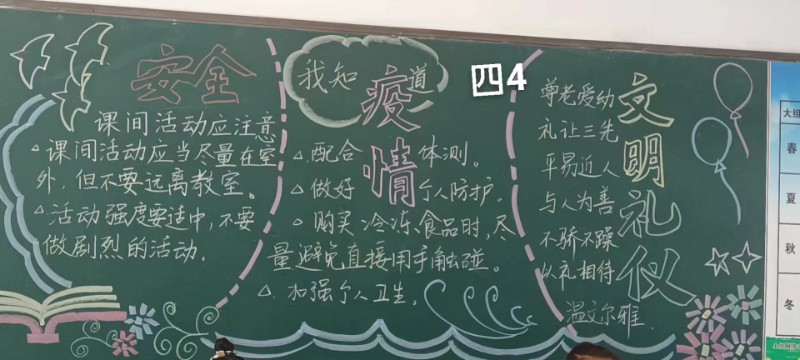 安全
课间活动应注意
△课间活动应当尽量在室
外，但不要远离教室。
△活动强度要适中，不要
做剧烈的活动。
我知疫情道
四4
△配合体测。
△做好个人防护。
△购买冷冻食品时，尽
量避免直接用手触碰。
△加强个人卫生。
文明礼仪
尊老爱幼
礼让三先
平易近人
与人为善
不骄不躁
以礼相待
温文尔雅
大组
春
夏
秋
冬